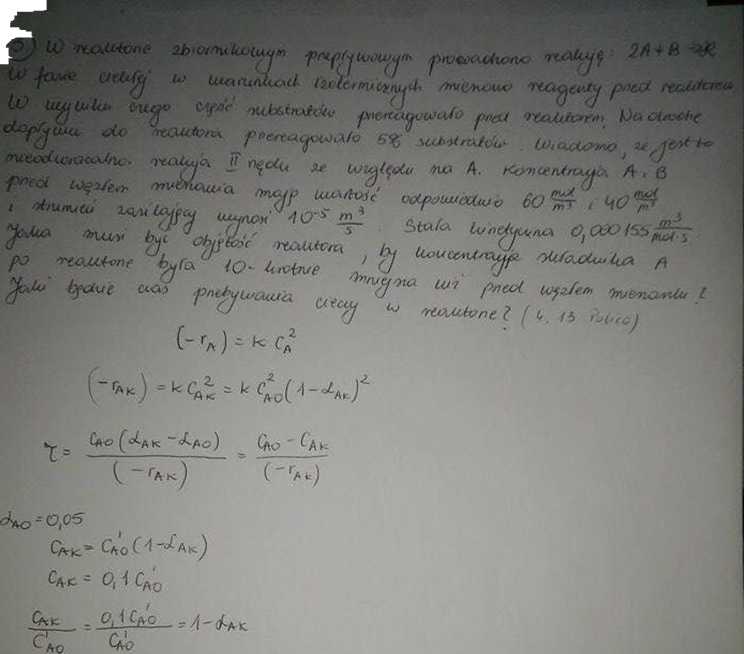 W reaktorze zbiornikowym przepływowym prowadzono reakcję: 2A + B → 2R
W fazie ciekłej w warunkach izotermicznych mieszano reagenty przed reaktorem
W wyniku czego część substratów przereagowało przed reaktorem. Na drodze
dopływu do reaktora przereagowało 5% substratów. Wiadomo, że jest to
nieodwracalna reakcja II rzędu ze względu na A. Koncentracja A i B
przed węzłem mieszania mają wartość odpowiednio 60 mol/m³ i 40 mol/m³
i strumień zasilający wynosi 10⁻⁵ m³/s. Stała kinetyczna 0,000155 m³/mol·s.
Jaka musi być objętość reaktora, by koncentracja składnika A
po reaktorze była 10-krotnie mniejsza niż przed węzłem mieszania?
Jaki będzie czas przebywania cieczy w reaktorze? (4.13
(-rA) = k CA²
(-rAK) = k CAK² = k CAO² (1-αAK)²
τ = CAO(αAK - αAO)/(-rAK) = CAO - CAK/(-rAK)
αAO = 0,05
CAK = C'AO (1-αAK)
CAK = 0,1 C'AO
CAK/C'AO = 0,1 C'AO/C'AO = 1-αAK